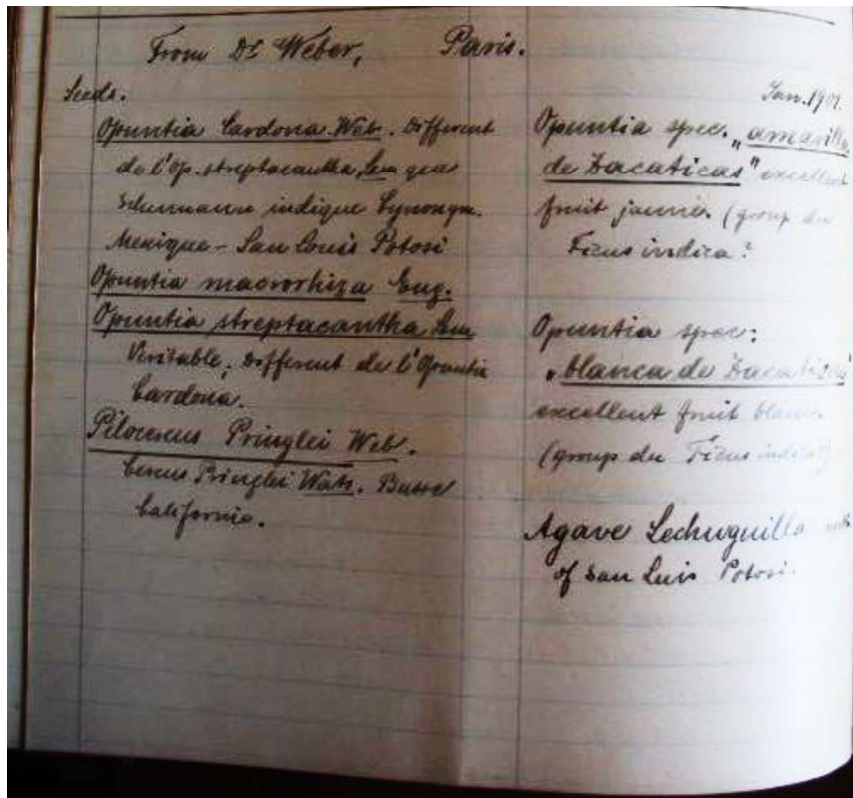 From Dr Weber, Paris.
Seeds.
Jan. 1901.
Opuntia Cardona Web. Different
de l'Op. streptacantha Lem que
Schumann indique Synonym.
Mexique - San Louis Potosi
Opuntia macrorhiza Eng.
Opuntia streptacantha Lem
Veritable, Different de l'Opuntia
Cardona.
Pilocereus Pringlei Web.
Cereus Pringlei Wats. Basse
California.
Opuntia spec. „amarilla
de Zacaticas" excellent
fruit jaune. (group du
Ficus indica?
Opuntia spec:
„blanca de
excellent fruit
(group du Ficus indica?)
Agave Lechuguilla
of San Luis Potosi.